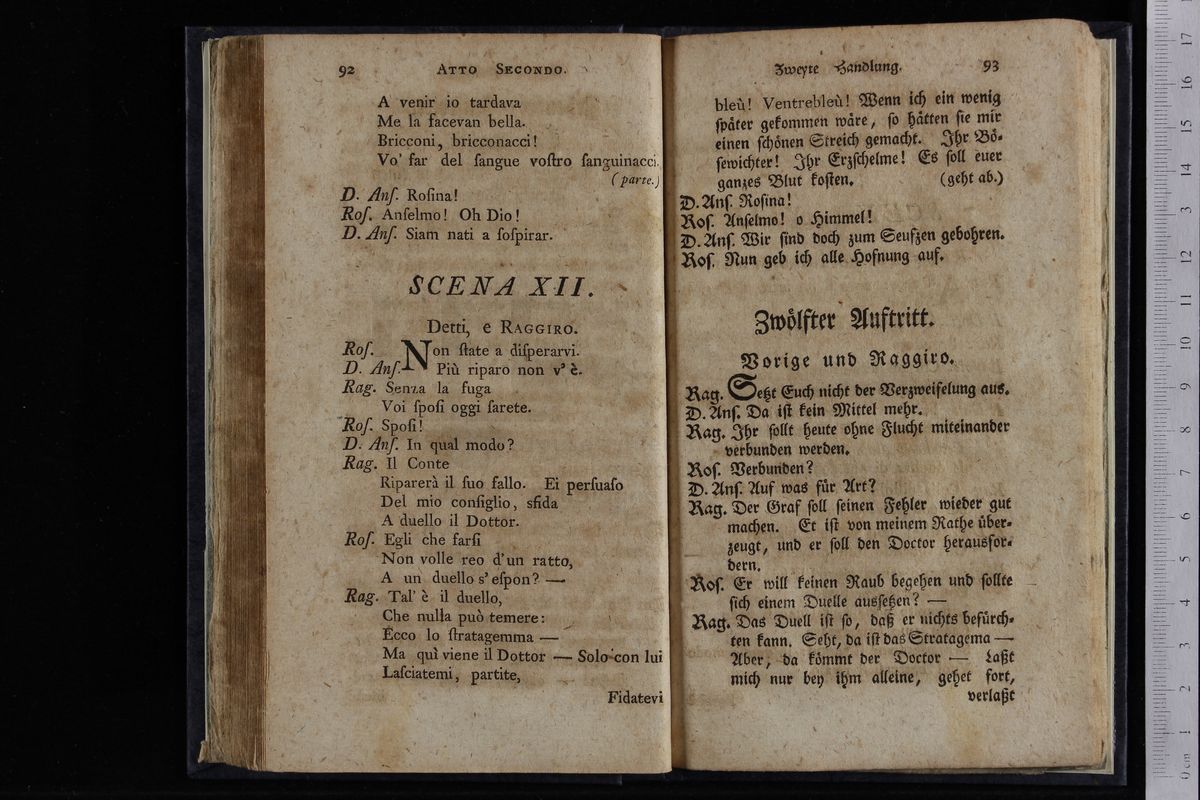 92 ATTO SECONDO.
A venir io tardava
Me la facevan bella.
Bricconi, bricconacci!
Vo' far del ſangue voſtro ſanguinacci.
(parte.)
D. Anſ. Roſina!
Roſ. Anſelmo! Oh Dio!
D. Anſ. Siam nati a ſoſpirar.
SCENA XII.
Detti, e RAGGIRO.
Roſ. Non ſtate a diſperarvi.
D. Anſ. Più riparo non v' è.
Rag. Senza la fuga
Voi ſpoſi oggi ſarete.
Roſ. Spoſi!
D. Anſ. In qual modo?
Rag. Il Conte
Riparerà il ſuo fallo. Ei perſuaſo
Del mio conſiglio, sfida
A duello il Dottor.
Roſ. Egli che farſi
Non volle reo d'un ratto,
A un duello s' eſpon? —
Rag. Tal' è il duello,
Che nulla può temere:
Ecco lo ſtratagemma —
Ma quì viene il Dottor — Solo con lui
Laſciatemi, partite,
Fidatevi
Zweyte Handlung. 93
bleù! Ventrebleù! Wenn ich ein wenig
ſpäter gekommen wäre, ſo hätten ſie mir
einen ſchönen Streich gemacht. Ihr Bö-
ſewichter! Ihr Erzſchelme! Es ſoll euer
ganzes Blut koſten. (geht ab.)
D. Anſ. Roſina!
Roſ. Anſelmo! o Himmel!
D. Anſ. Wir ſind doch zum Seufzen gebohren.
Roſ. Nun geb ich alle Hofnung auf.
Zwölfter Auftritt.
Vorige und Raggiro.
Rag. Setzt Euch nicht der Verzweifelung aus.
D. Anſ. Da iſt kein Mittel mehr.
Rag. Ihr ſollt heute ohne Flucht miteinander
verbunden werden.
Roſ. Verbunden?
D. Anſ. Auf was für Art?
Rag. Der Graf ſoll ſeinen Fehler wieder gut
machen. Et iſt von meinem Rathe über-
zeugt, und er ſoll den Doctor herausfor-
dern.
Roſ. Er will keinen Raub begehen und ſollte
ſich einem Duelle ausſetzen? —
Rag. Das Duell iſt ſo, daß er nichts befürch-
ten kann. Seht, da iſt das Stratagema —
Aber, da kömmt der Doctor — Laßt
mich nur bey ihm alleine, gehet fort,
verlaßt